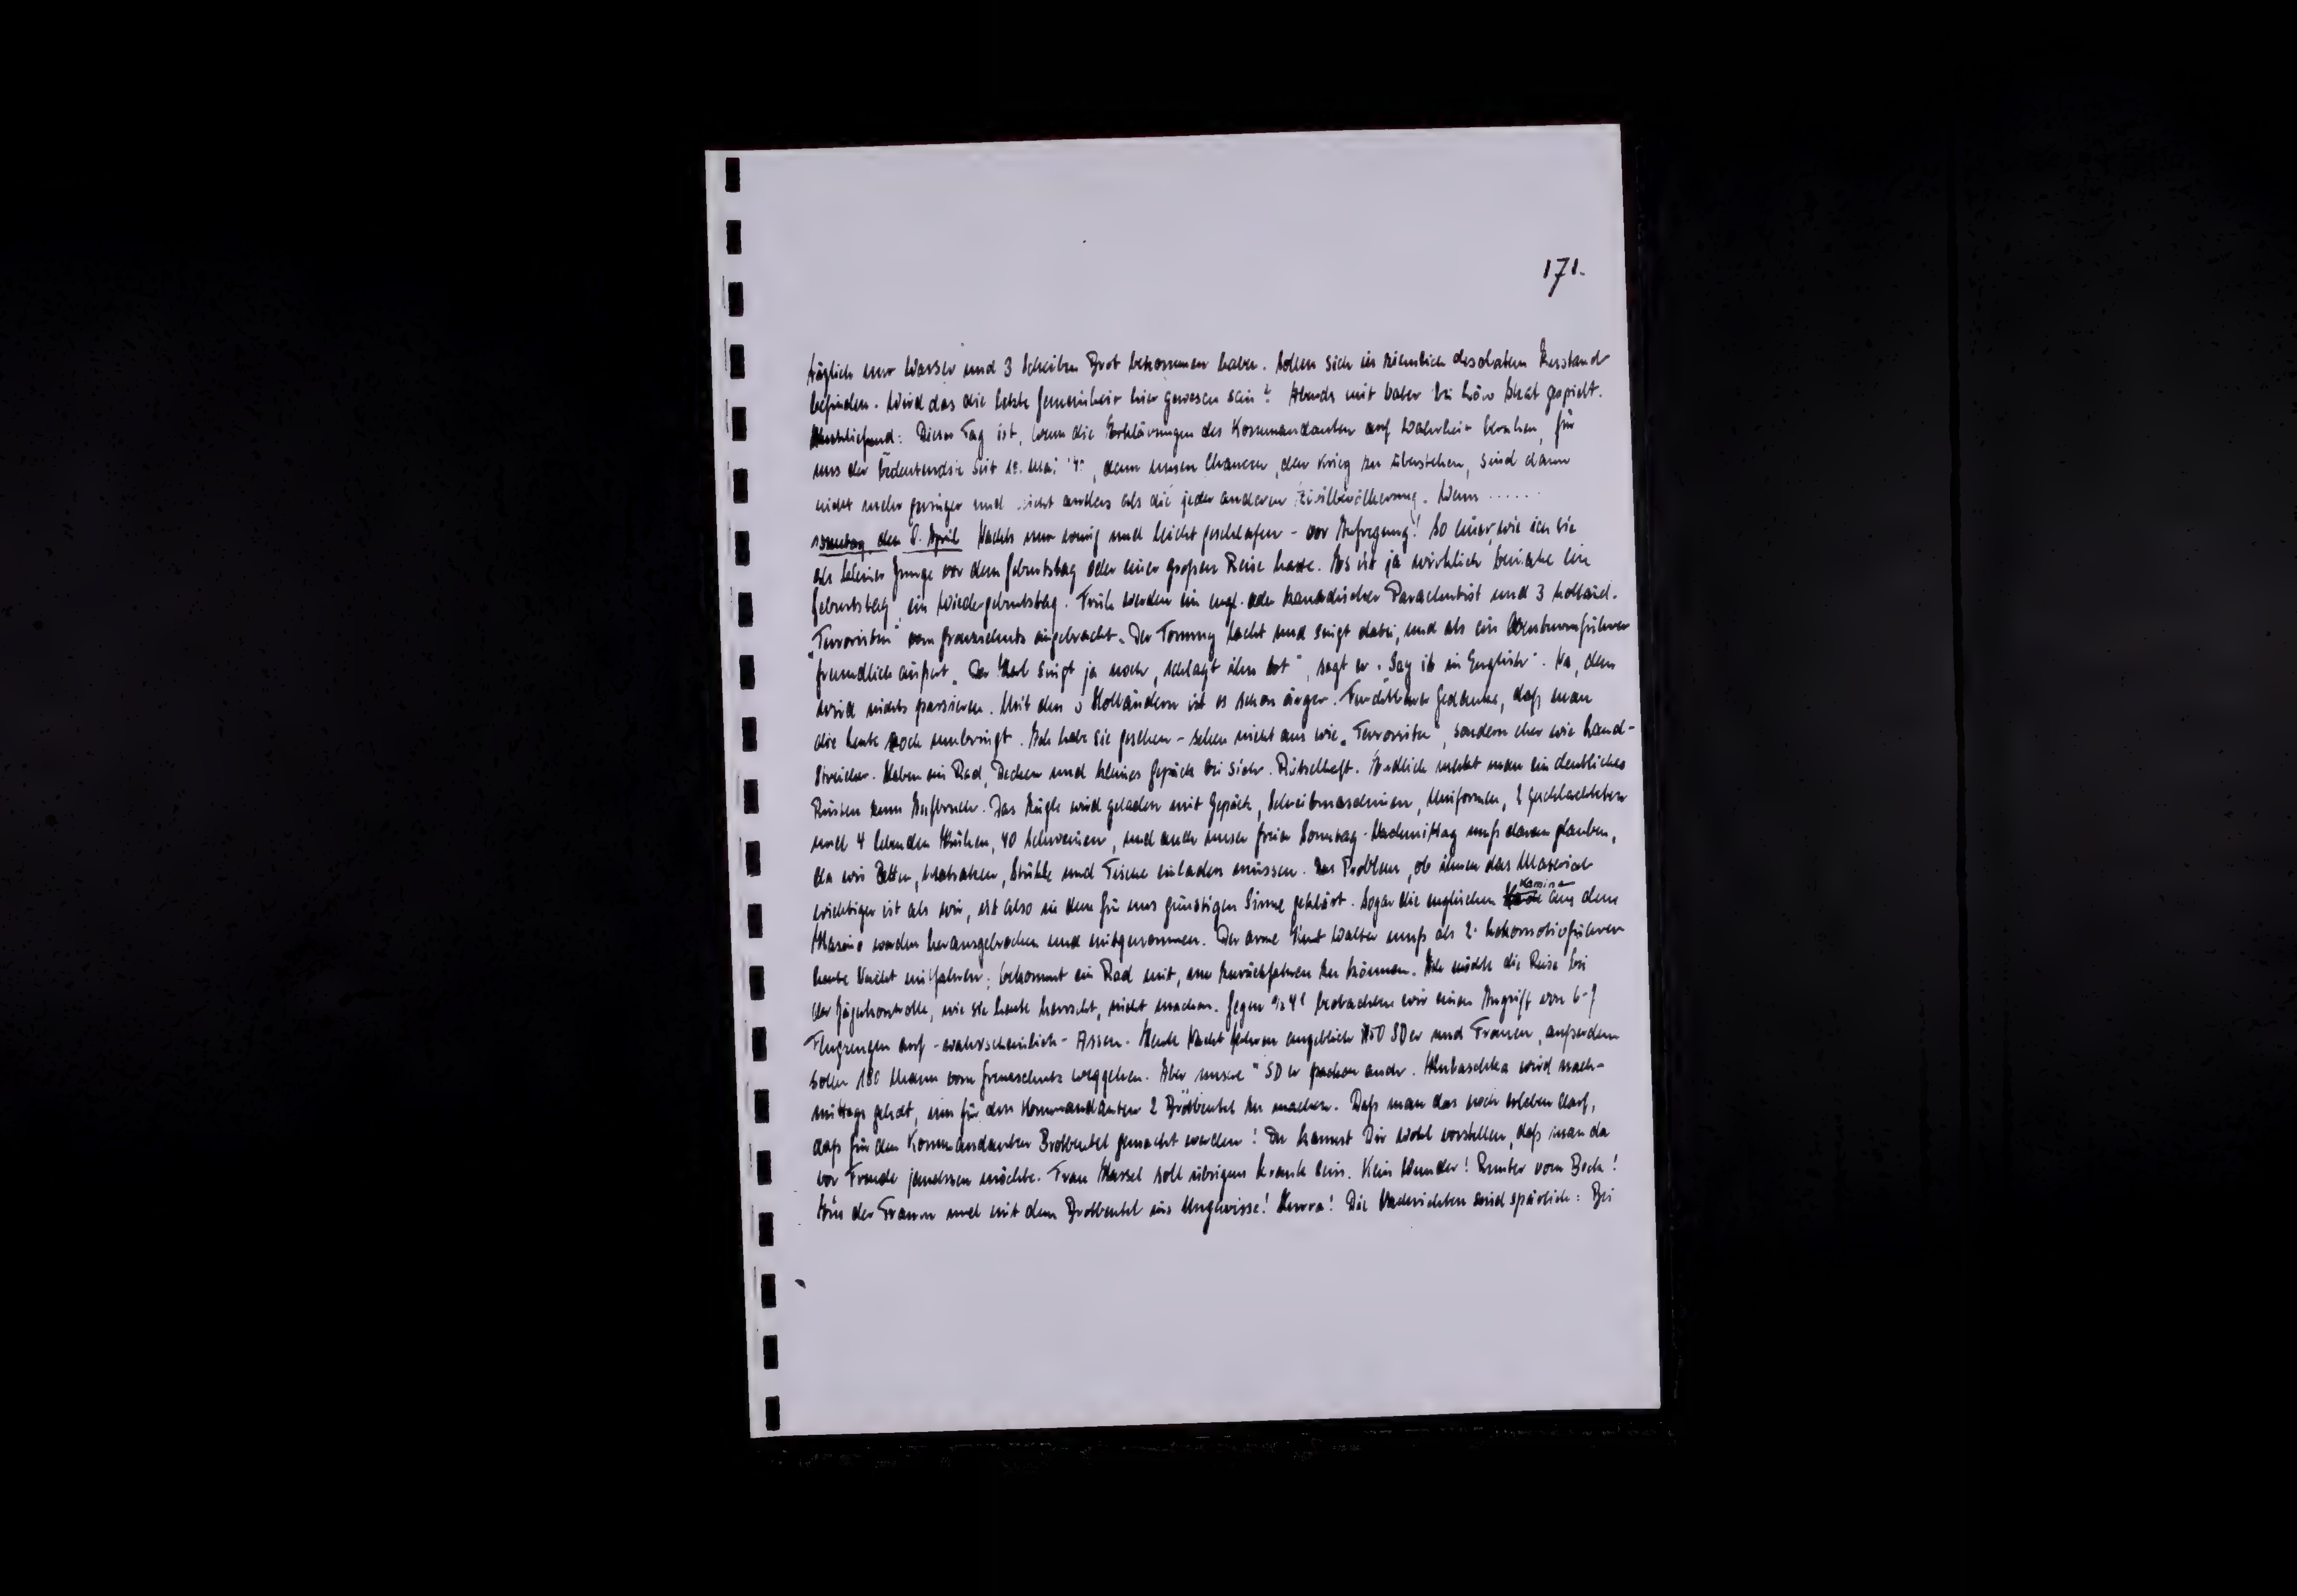 171.
täglich nur Wasser und 3 Scheiben Brot bekommen haben. Sollen sich in ziemlich desolatem Zustand
befinden. Wird das die letzte Gemeinheit hier gewesen sein? Abends mit Vater bei Löw Skat gespielt.
Anschließend: Dieser Tag ist, wenn die Erklärungen des Kommandanten auf Wahrheit beruhen, für
uns der bedeutendste seit 10. Mai '40, denn unsere Chancen, den Krieg zu überstehen, sind dann
nicht mehr geringer und nicht anders als die jeder anderen Zivilbevölkerung. Wenn ......
Sonntag, den 8. April Nachts nur wenig und leicht geschlafen - vor Aufregung! So einer, wie ich sie
als kleiner Junge vor dem Geburtstag oder einer großen Reise hatte. Es ist ja wirklich beinahe ein
Geburtstag, ein Wiedergeburtstag. Früh werden ein engl. oder kanadischer Parachutist und 3 holländ.
"Terroristen" vom Grenzschutz eingebracht. Der Tommy lacht und singt dabei, und als ein Obersturmführer
freundlich äußert "Der Kerl singt ja noch, schlagt ihn tot", sagt er "Say it in English". Na, dem
wird nichts passieren. Mit den 3 Holländern ist es schon ärger. Furchtbarer Gedanke, daß man
die heute noch umbringt. Ich habe sie gesehen - sehen nicht aus wie "Terroristen", sondern eher wie Land-
streicher. Haben ein Rad, Decken und kleines Gepäck bei sich. Rätselhaft. Endlich merkt man ein deutliches
Rüsten zum Aufbruch. Das Zügle wird geladen mit Gepäck, Schreibmaschinen, Uniformen, 2 geschlachteten
und 4 lebenden Kühen, 40 Schweinen, und auch unser freier Sonntag-Nachmittag muß daran glauben,
da wir Betten, Matratzen, Stühle und Tische einladen müssen. Das Problem, ob ihnen das Material
wichtiger ist als wir, ist also in dem für uns günstigen Sinne geklärt. Sogar die englischen Kamine aus dem
Kasino werden herausgebrochen und mitgenommen. Der arme Kurt Walter muß als 2. Lokomotivführer
heute Nacht mitfahren; bekommt ein Rad mit, um zurückfahren zu können. Ich möchte die Reise bei
der Jägerkontrolle, wie sie heute herrscht, nicht machen. Gegen 1/2 4h beobachten wir einen Angriff von 6-7
Flugzeugen auf - wahrscheinlich - Assen. Heute Nacht fahren angeblich 150 SDer und Frauen, außerdem
sollen 180 Mann vom Grenzschutz weggehen. Aber unsere "SDer packen auch. Kubaschka wird nach-
mittags geholt, um für den Kommandanten 2 Brotbeutel zu machen. Daß man das noch erleben darf,
daß für den Kommandanten Brotbeutel gemacht werden! Du kannst Dir wohl vorstellen, daß man da
vor Freude jauchzen möchte. Frau Hassel soll übrigens krank sein. Kein Wunder! Runter vom Bock!
Aus der Traum und mit dem Brotbeutel ins Ungewisse! Hurra! Die Nachrichten sind spärlich: Bei